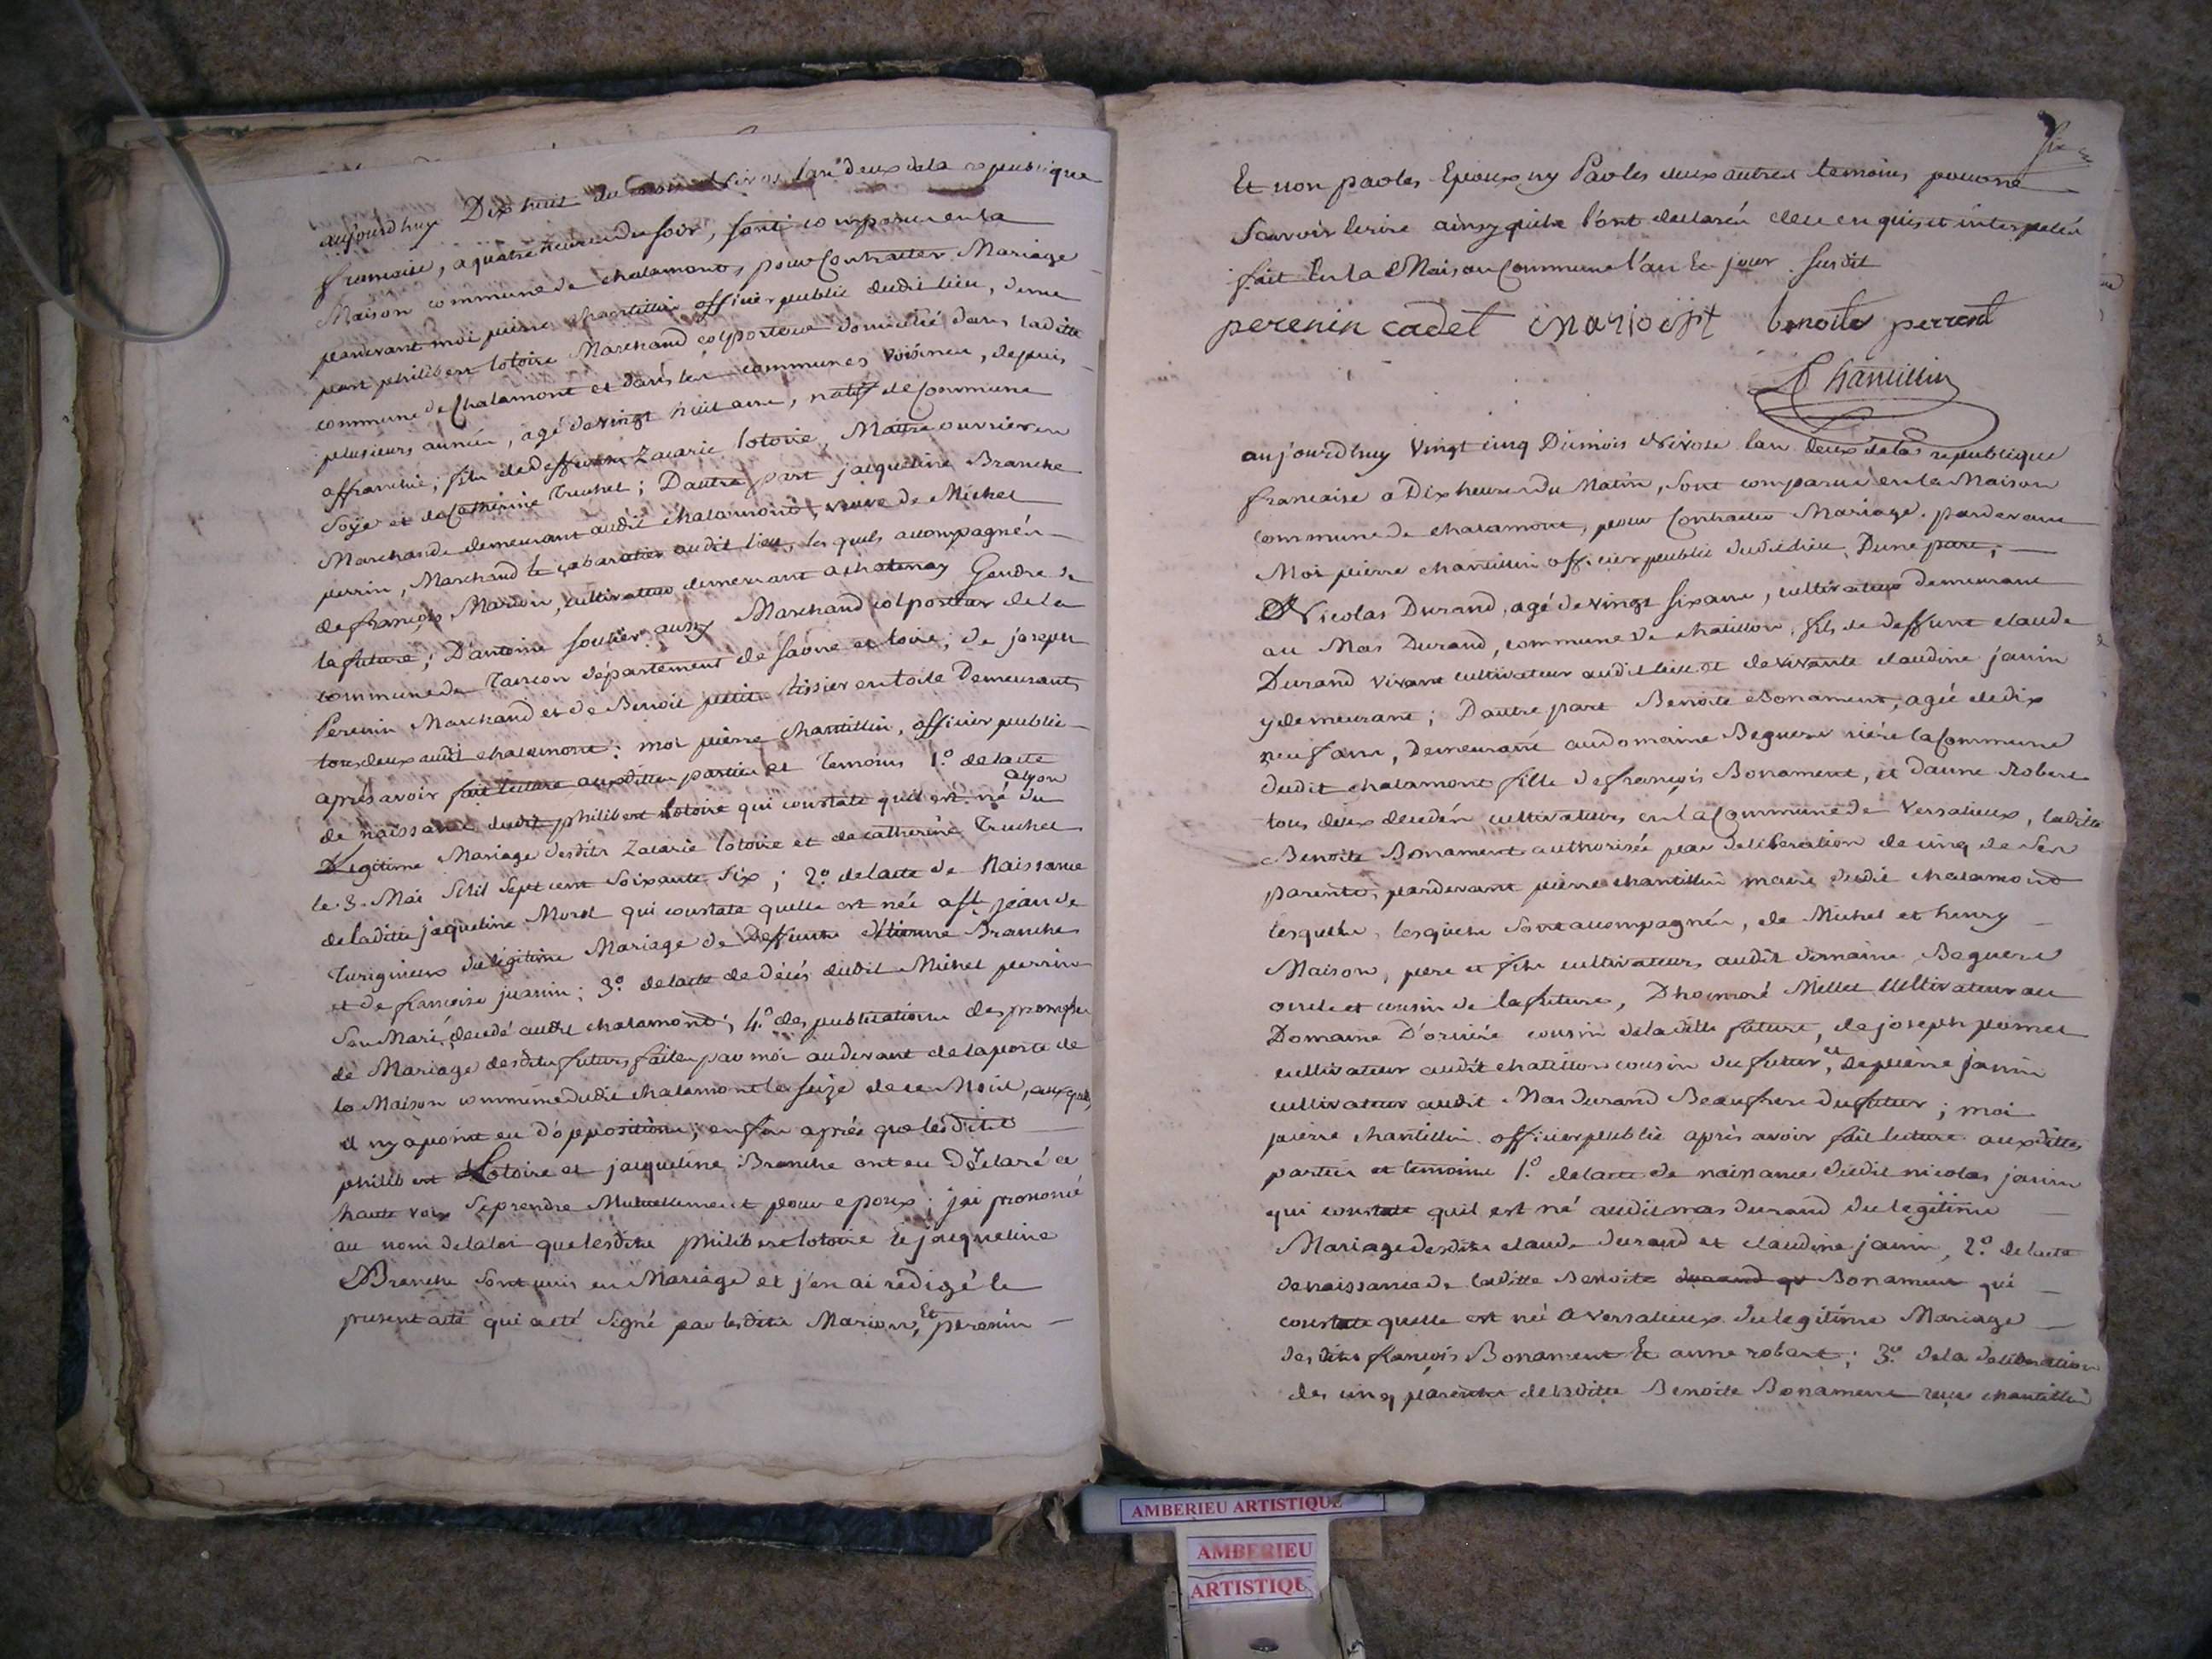 aujourdhuy Dix huit du mois Nivos lan deux dela republique
francaise, a quatre heures du soir, sont comparu en la
Maison commune de chalamont, pour Contracter Mariage
pardevant moi pierre chantillin officier public dudit lieu, dune
part philibert lotoire Marchand colporteur domicilié dans laditte
commune de Chalamont et dans les communes voisines, depuis
plusieurs année, agé de vingt huit ans, natif de Commune
affranchie, fils de deffunt Zacarie lotoire, Maitre ouvrier en
Soÿe et de Catherine Truchet; Dautre part jacqueline Branche
Marchande demeurant audit chalamont, veuve de Michel
perrin, Marchand et cabaratier audit lieu, les quels accompagnés
de françois Marion, cultivateur demeurant a chatenay Gendre de
la future; D'antoine soutier aussy Marchand colporteur de la
commune de Tancon département de saone et loire; de joseph
Perenin Marchand et de Benoit tissier en toile Demeurants
tous deux audit chalamont: moi pierre chantillin, officier public
apres avoir fait lecture auxdittes parties et Temoins 1.° de lacte
de naissance dudit philibert lotoire qui constate quil est né alyon du
Légitime Mariage desdits Zacarie lotoire et de catherine Truchet
le 3. Mai Mil Sept cent Soixante Six; 2.° de lacte de Naissance
de laditte jaqueline Morel qui constate quelle est née a st jean de
Turigneux du légitime Mariage de Deffunts etienne Branche
et de francoise juanin; 3.° de lacte de décès dudit Michel perrin
Son Mari, decedé audit chalamond; 4.° des publications des promesses
de Mariage desdits futurs faites par moi audevant de la porte de
la Maison commune dudit chalamont le seize de ce Mois, auxquels
il ny apoint eu d'opposition; enfin après que lesdits
philibert Lotoire et jacqueline Branche ont eu Déclaré a
haute voix Se prendre Mutuellement pour epoux; jai prononcé
au nom de la loi que lesdits philibert lotoire Et jacqueline
Branche Sont unis en Mariage et j'en ai rédigé le
present acte qui a eté Signé par lesdits Marion, Et perenin
Six
Et non par les Epoux ny Par les deux autres temoins pour ne
Scavoir Ecrire ainsy quils l'ont declarés de ce enquis et interpelés
fait En la Maison Commune l'an Et jour susdit
perenin cadet Marion benoite perrout
Chantillin
aujourdhuy Vingt cinq Dumois Nivose lan deux dela republique
francaise a Dix heures du Matin, Sont comparus en la Maison
Commune de chalamont, pour Contracter Mariage. pardevant
Moi pierre chantillin officier public dudit lieu, Dune part,
Nicolas Durand, agé de vingt six ans, cultivateur demeurant
au Mas Durand, commune de chatillon, fils de deffunt claude
Durand vivant cultivateur audit lieu et de vivante claudine janin
y demeurant; Dautre part Benoite Bonament, agée de dix
neuf ans, Demeurant audomaine Beguere riére la Commune
dudit chalamont fille de françois Bonament, et danne Robert
tous deux decedés cultivateurs en la Commune de Versalieux, laditte
Benoite Bonament authorisée par deliberation de cinq de Ses
parents, pardevant pierre chantillin maire dudit chalamond
lesquelles, lesquels Sont accompagnés, de Michel et henry
Maison, pere et fils cultivateurs audit domaine Beguere
oncle et cousin de la future, Dhonnoré Millet Cultivateur au
Domaine D'oriére cousin de laditte future, de joseph pomet
cultivateur audit chatillon cousin du futur, et de pierre janin
cultivateur audit Mas durand Beaufrere du futur; moi
pierre chantillin officier public après avoir fait lecture auxdittes
parties et temoins 1.° de lacte de naissance dudit nicolas janin
qui constate quil est né audit mas durand du legitime
Mariage desdits claude durand et claudine janin, 2.° de lacte
de naissance de laditte Benoite durand qu Bonament qui
constate quelle est née a versalieux du legitime Mariage
des dits françois Bonament Et anne robert; 3.° de la deliberation
des cinq parents de laditte Benoite Bonament chantillin
AMBERIEU ARTISTIQUE
AMBERIEU
ARTISTIQU